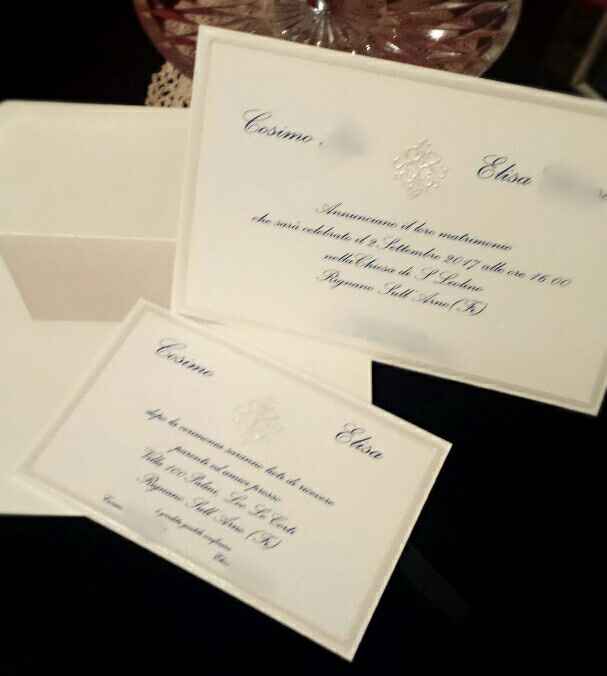 Cosimo
Elisa
Annunciano il loro matrimonio
che sarà celebrato il 2 Settembre 2017 alle ore 16.00
nella Chiesa di S. Leolino
Rignano Sull'Arno (Fi)
Cosimo
Elisa
dopo la cerimonia saranno lieti di ricevere
parenti ed amici presso
Villa 100 Palmi, Loc. Le Corti
Rignano Sull'Arno (Fi)
Cosimo
è gradita gentile conferma
Elisa